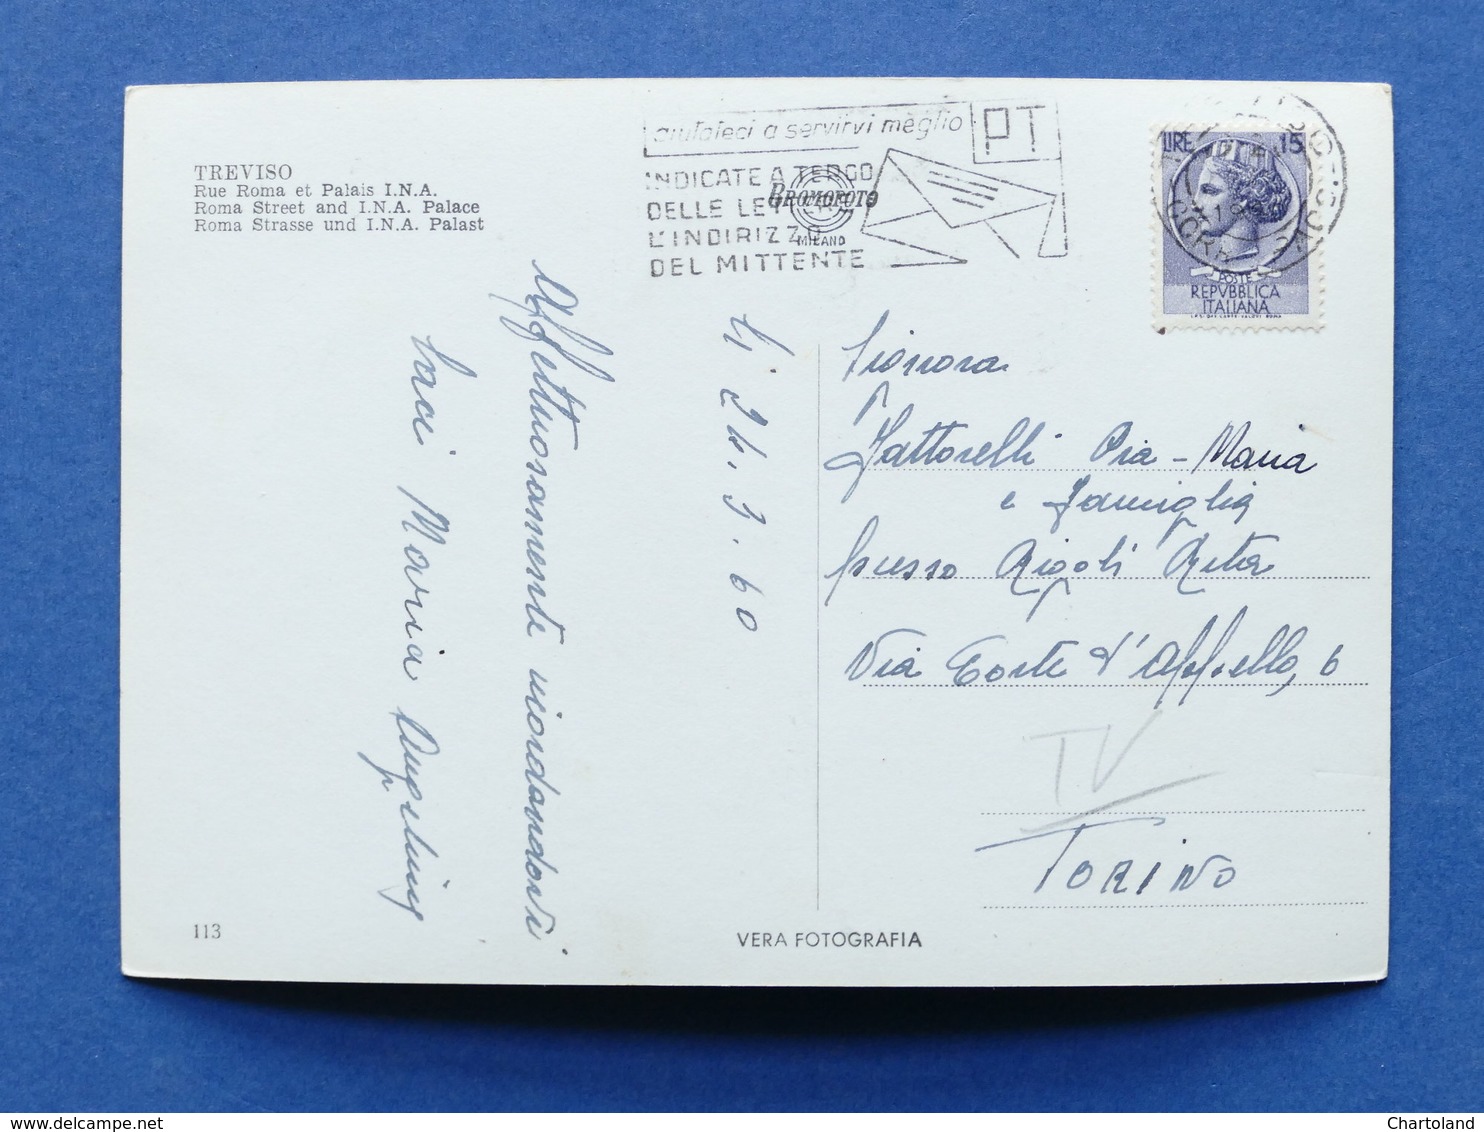 TREVISO
Rue Roma et Palais I.N.A.
Roma Street and I.N.A. Palace
Roma Strasse und I.N.A. Palast
aiutateci a servirvi meglio
PT
INDICATE A TERGO
DELLE LETTERE
L'INDIRIZZO
DEL MITTENTE
BROMOFOTO
MILANO
LIRE 15
POSTE
REPVBBLICA
ITALIANA
I.P.S. OFF. CARTE VALORI ROMA
lì 24.3.60
Affettuosamente ricordandovi
baci Maria Angelina
Signora
Fattorelli Pia - Maria
e famiglia
presso Rigoli Rita
Via Corte d'Appello, 6
TV
TORINO
113
VERA FOTOGRAFIA
Chartoland